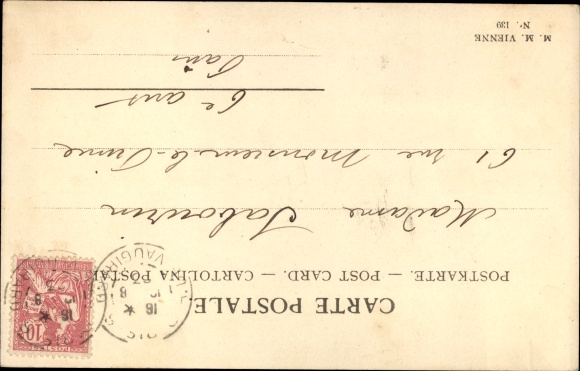 CARTE POSTALE.
POSTKARTE. — POST CARD. — CARTOLINA POSTALE
Madame Sabourin
61 rue Monsieur-le-Prince
6e arrt
Paris
M. M. VIENNE
Nr. 139
10
POSTES
PARIS
VAUGIRARD
16